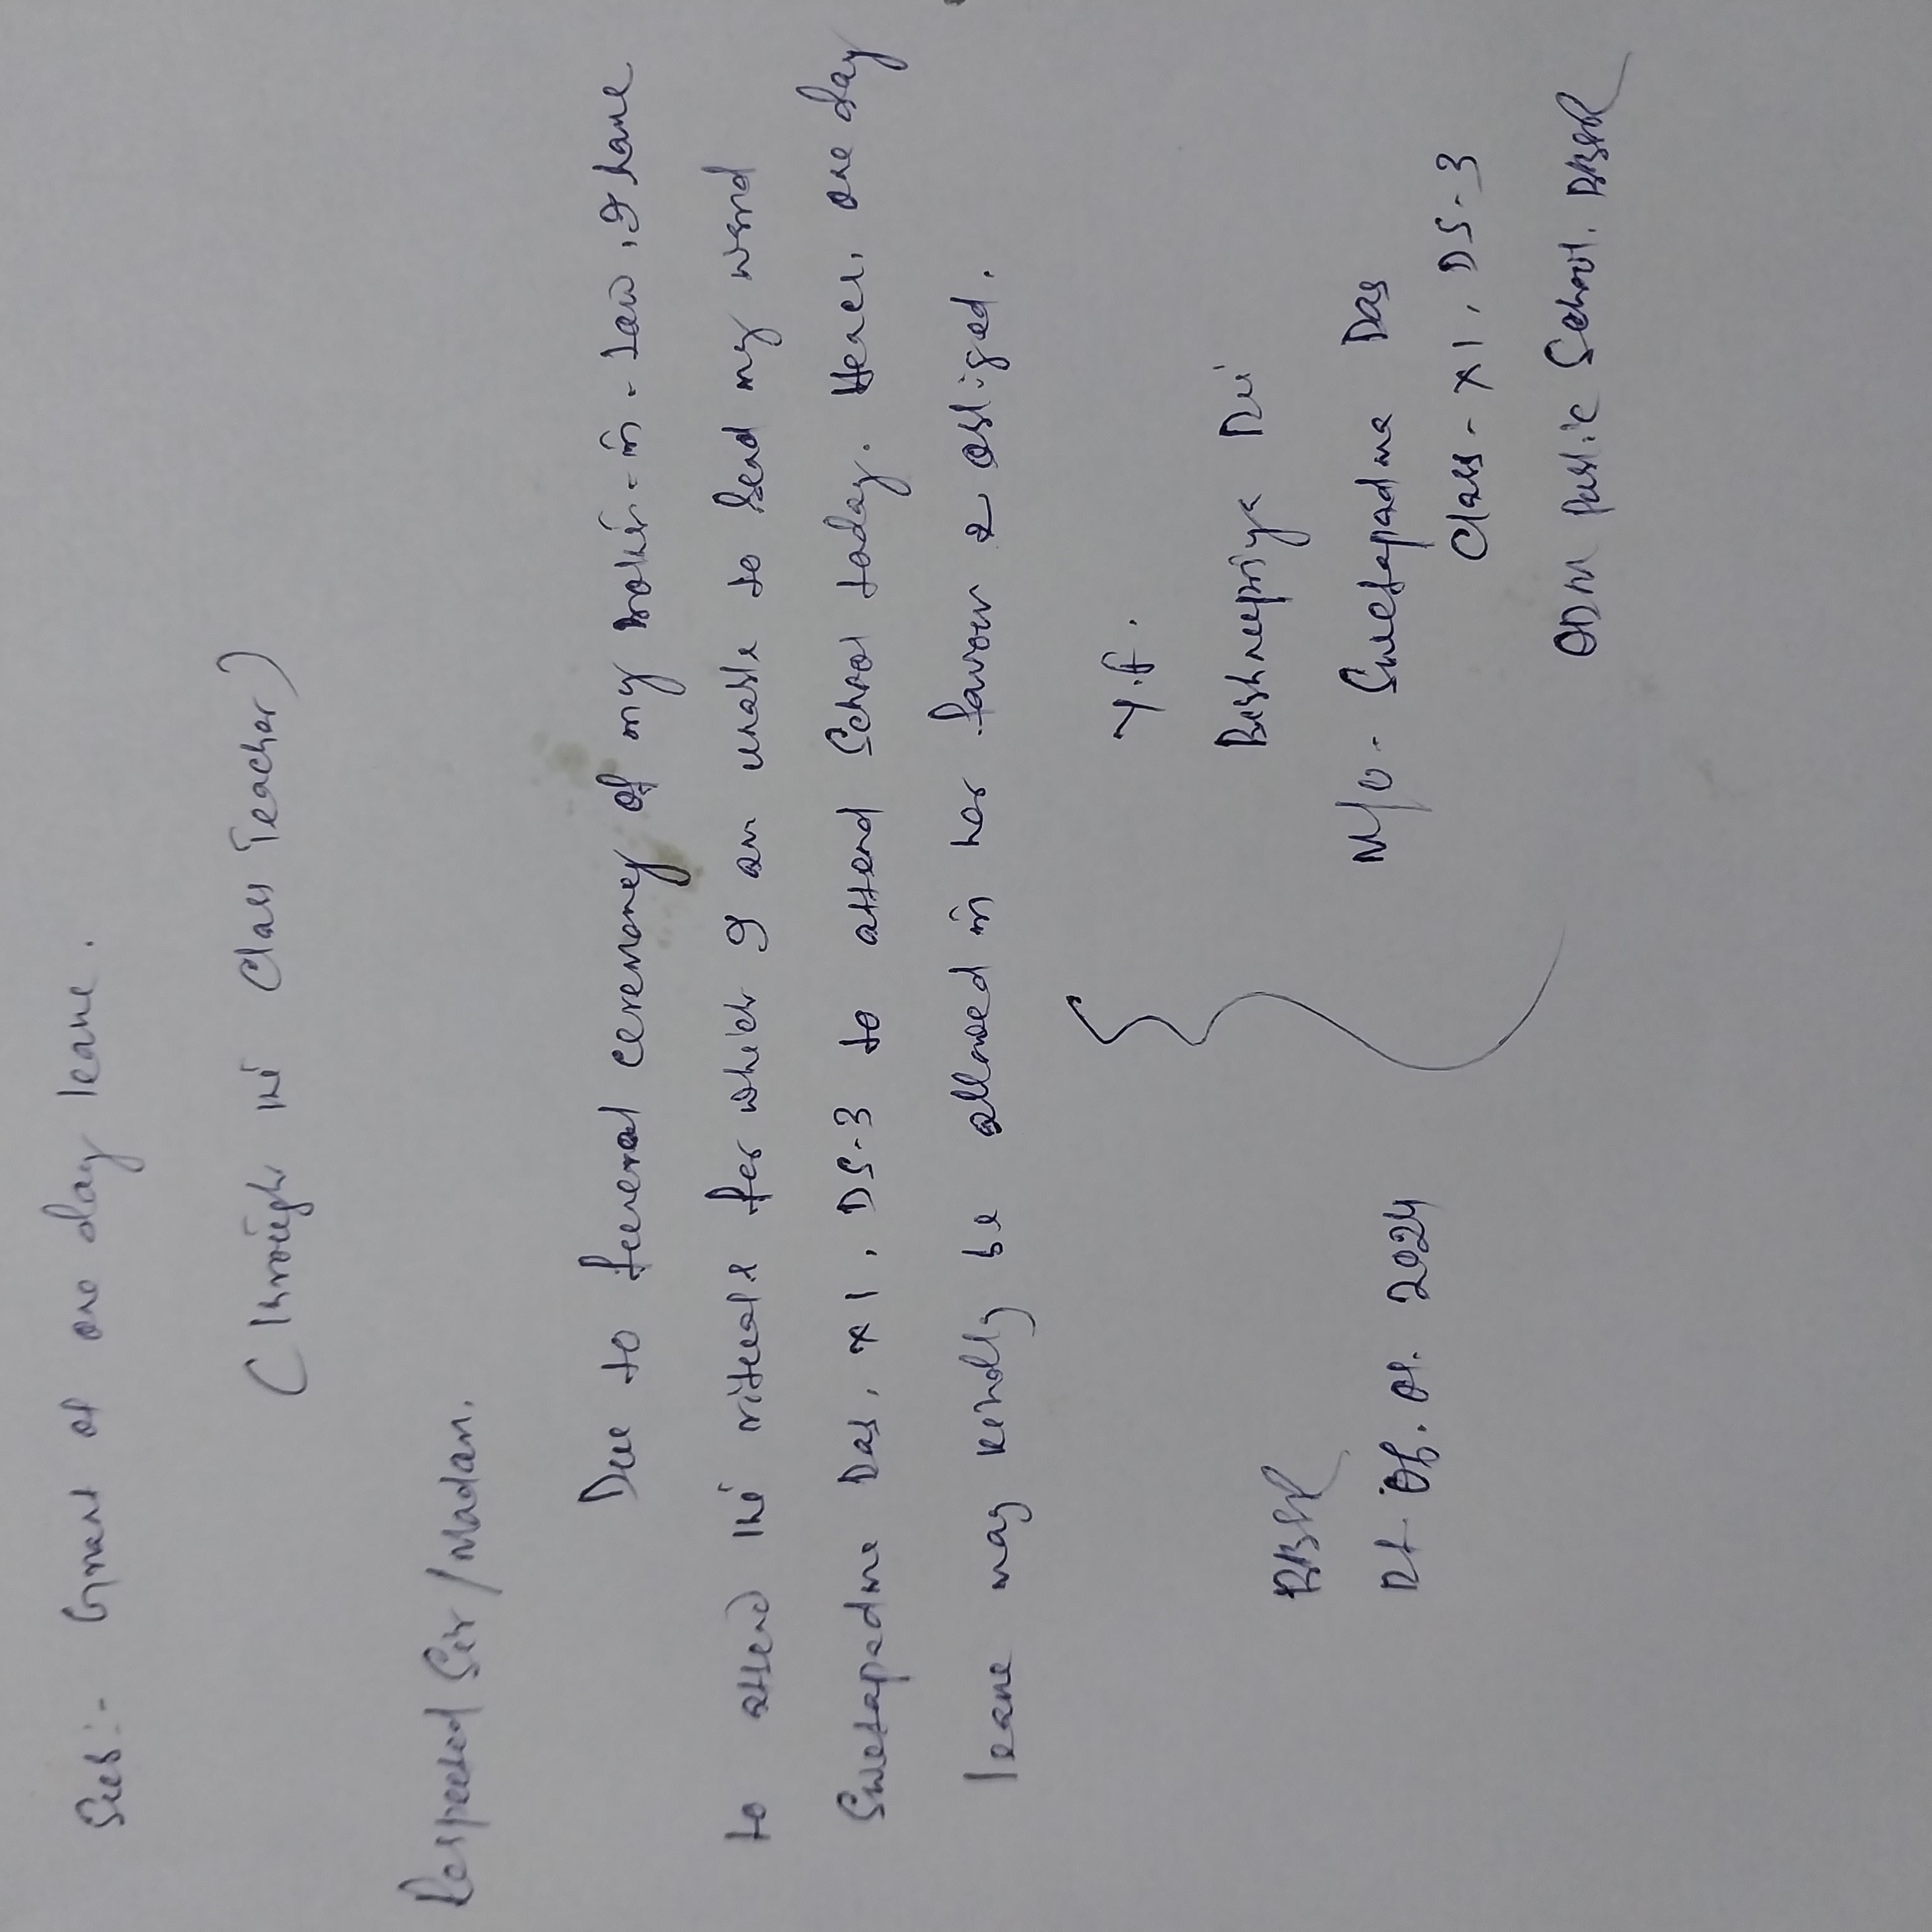 Sub:- Grant of one day leave.
(Through the Class Teacher)
Respected Sir/Madam.
Due to funeral ceremoney of my mother-in-law, I have
to attend the rituals for which I am unable to send my ward
Swetapadma Das, XI, DS-3 to attend School today. Hence, one day
leave may kindly be allowed in her favour & obliged.
Y.f.
Bishnupriya
M/o - Swetapadma Das
Class - XI, DS-3
ODM Public School. BBSR
BBSR
Dt. 01. 2024